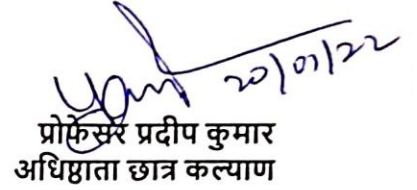 20/01/22
प्रोफेसर प्रदीप कुमार
अधिष्ठाता छात्र कल्याण